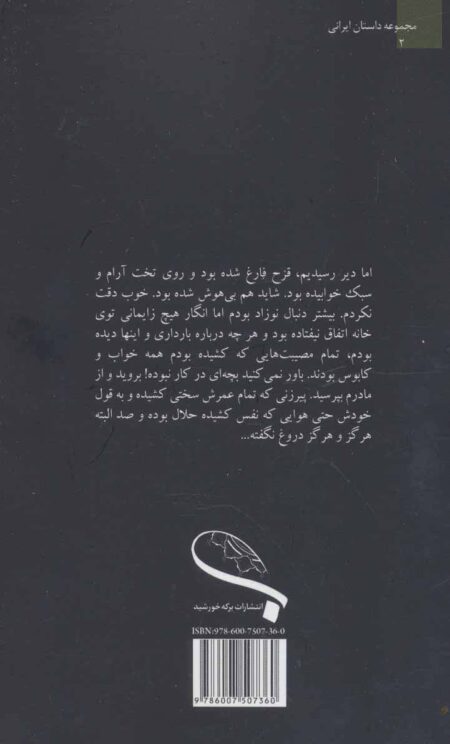 مجموعه داستان ایرانی
۲
اما دیر رسیدیم، قزح فارغ شده بود و روی تخت آرام و
سبک خوابیده بود. شاید هم بی‌هوش شده بود. خوب دقت
نکردم. بیشتر دنبال نوزاد بودم اما انگار هیچ زایمانی توی
خانه اتفاق نیفتاده بود و هر چه درباره بارداری و اینها دیده
بودم، تمام مصیبت‌هایی که کشیده بودم همه خواب و
کابوس بودند. باور نمی‌کنید بچه‌ای در کار نبوده! بروید و از
مادرم بپرسید. پیرزنی که تمام عمرش سختی کشیده و به قول
خودش حتی هوایی که نفس کشیده حلال بوده و صد البته
هرگز و هرگز دروغ نگفته...
انتشارات برکه خورشید
ISBN:978-600-7507-36-0
9 786007 507360